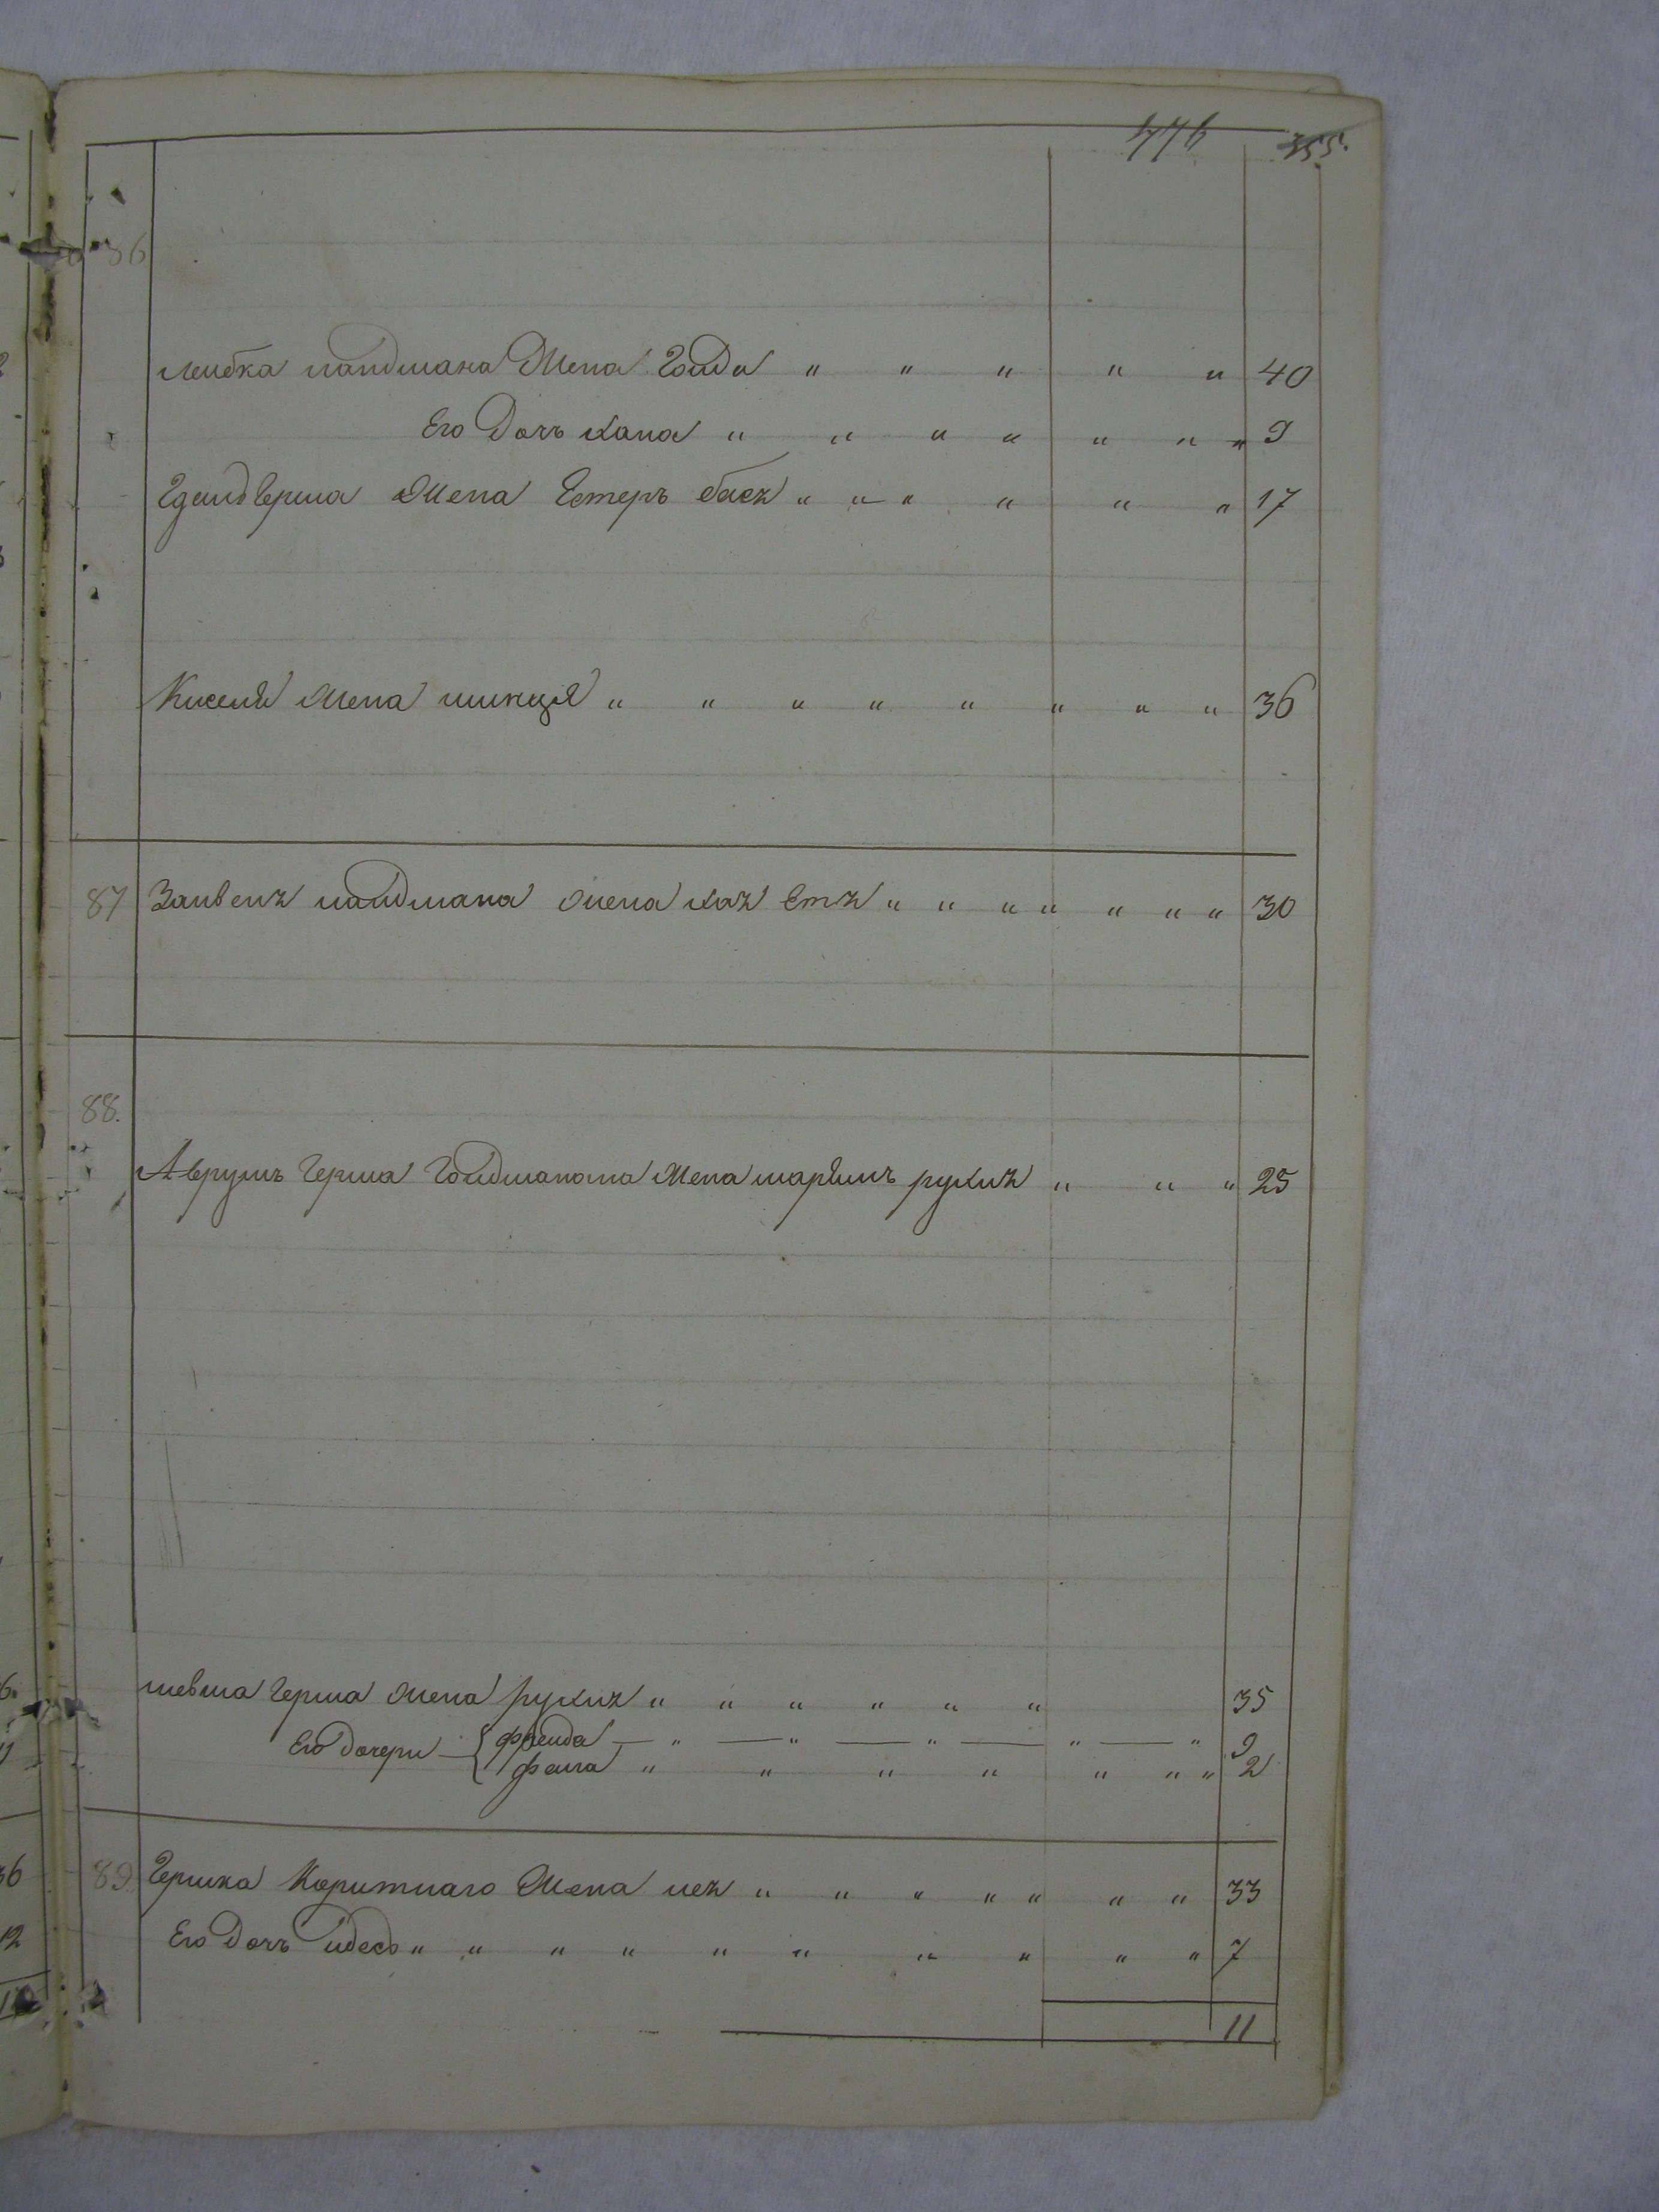 476 355.
86
лейбка ландмана Жена Голда " " " " " 40
Его Дочь хана " " " " " " " 9
Жена Естеръ бася " " " " " " 17
Киселя Жена шинця " " " " " " " " 36
87 Зайвеля ландмана жена хая Етя " " " " " " " 30
88.
Аврумъ Герша Голдмана Жена маріямъ рухля " " " 25
Герша жена рухля " " " " " " 35
Его Дочери { фрейда — " — " — " — " — " 9
фейга " " " " " " " 2
89. Гершка Коритнаго Жена лея " " " " " " " 33
Его Дочь идесъ " " " " " " " " " " 7
11